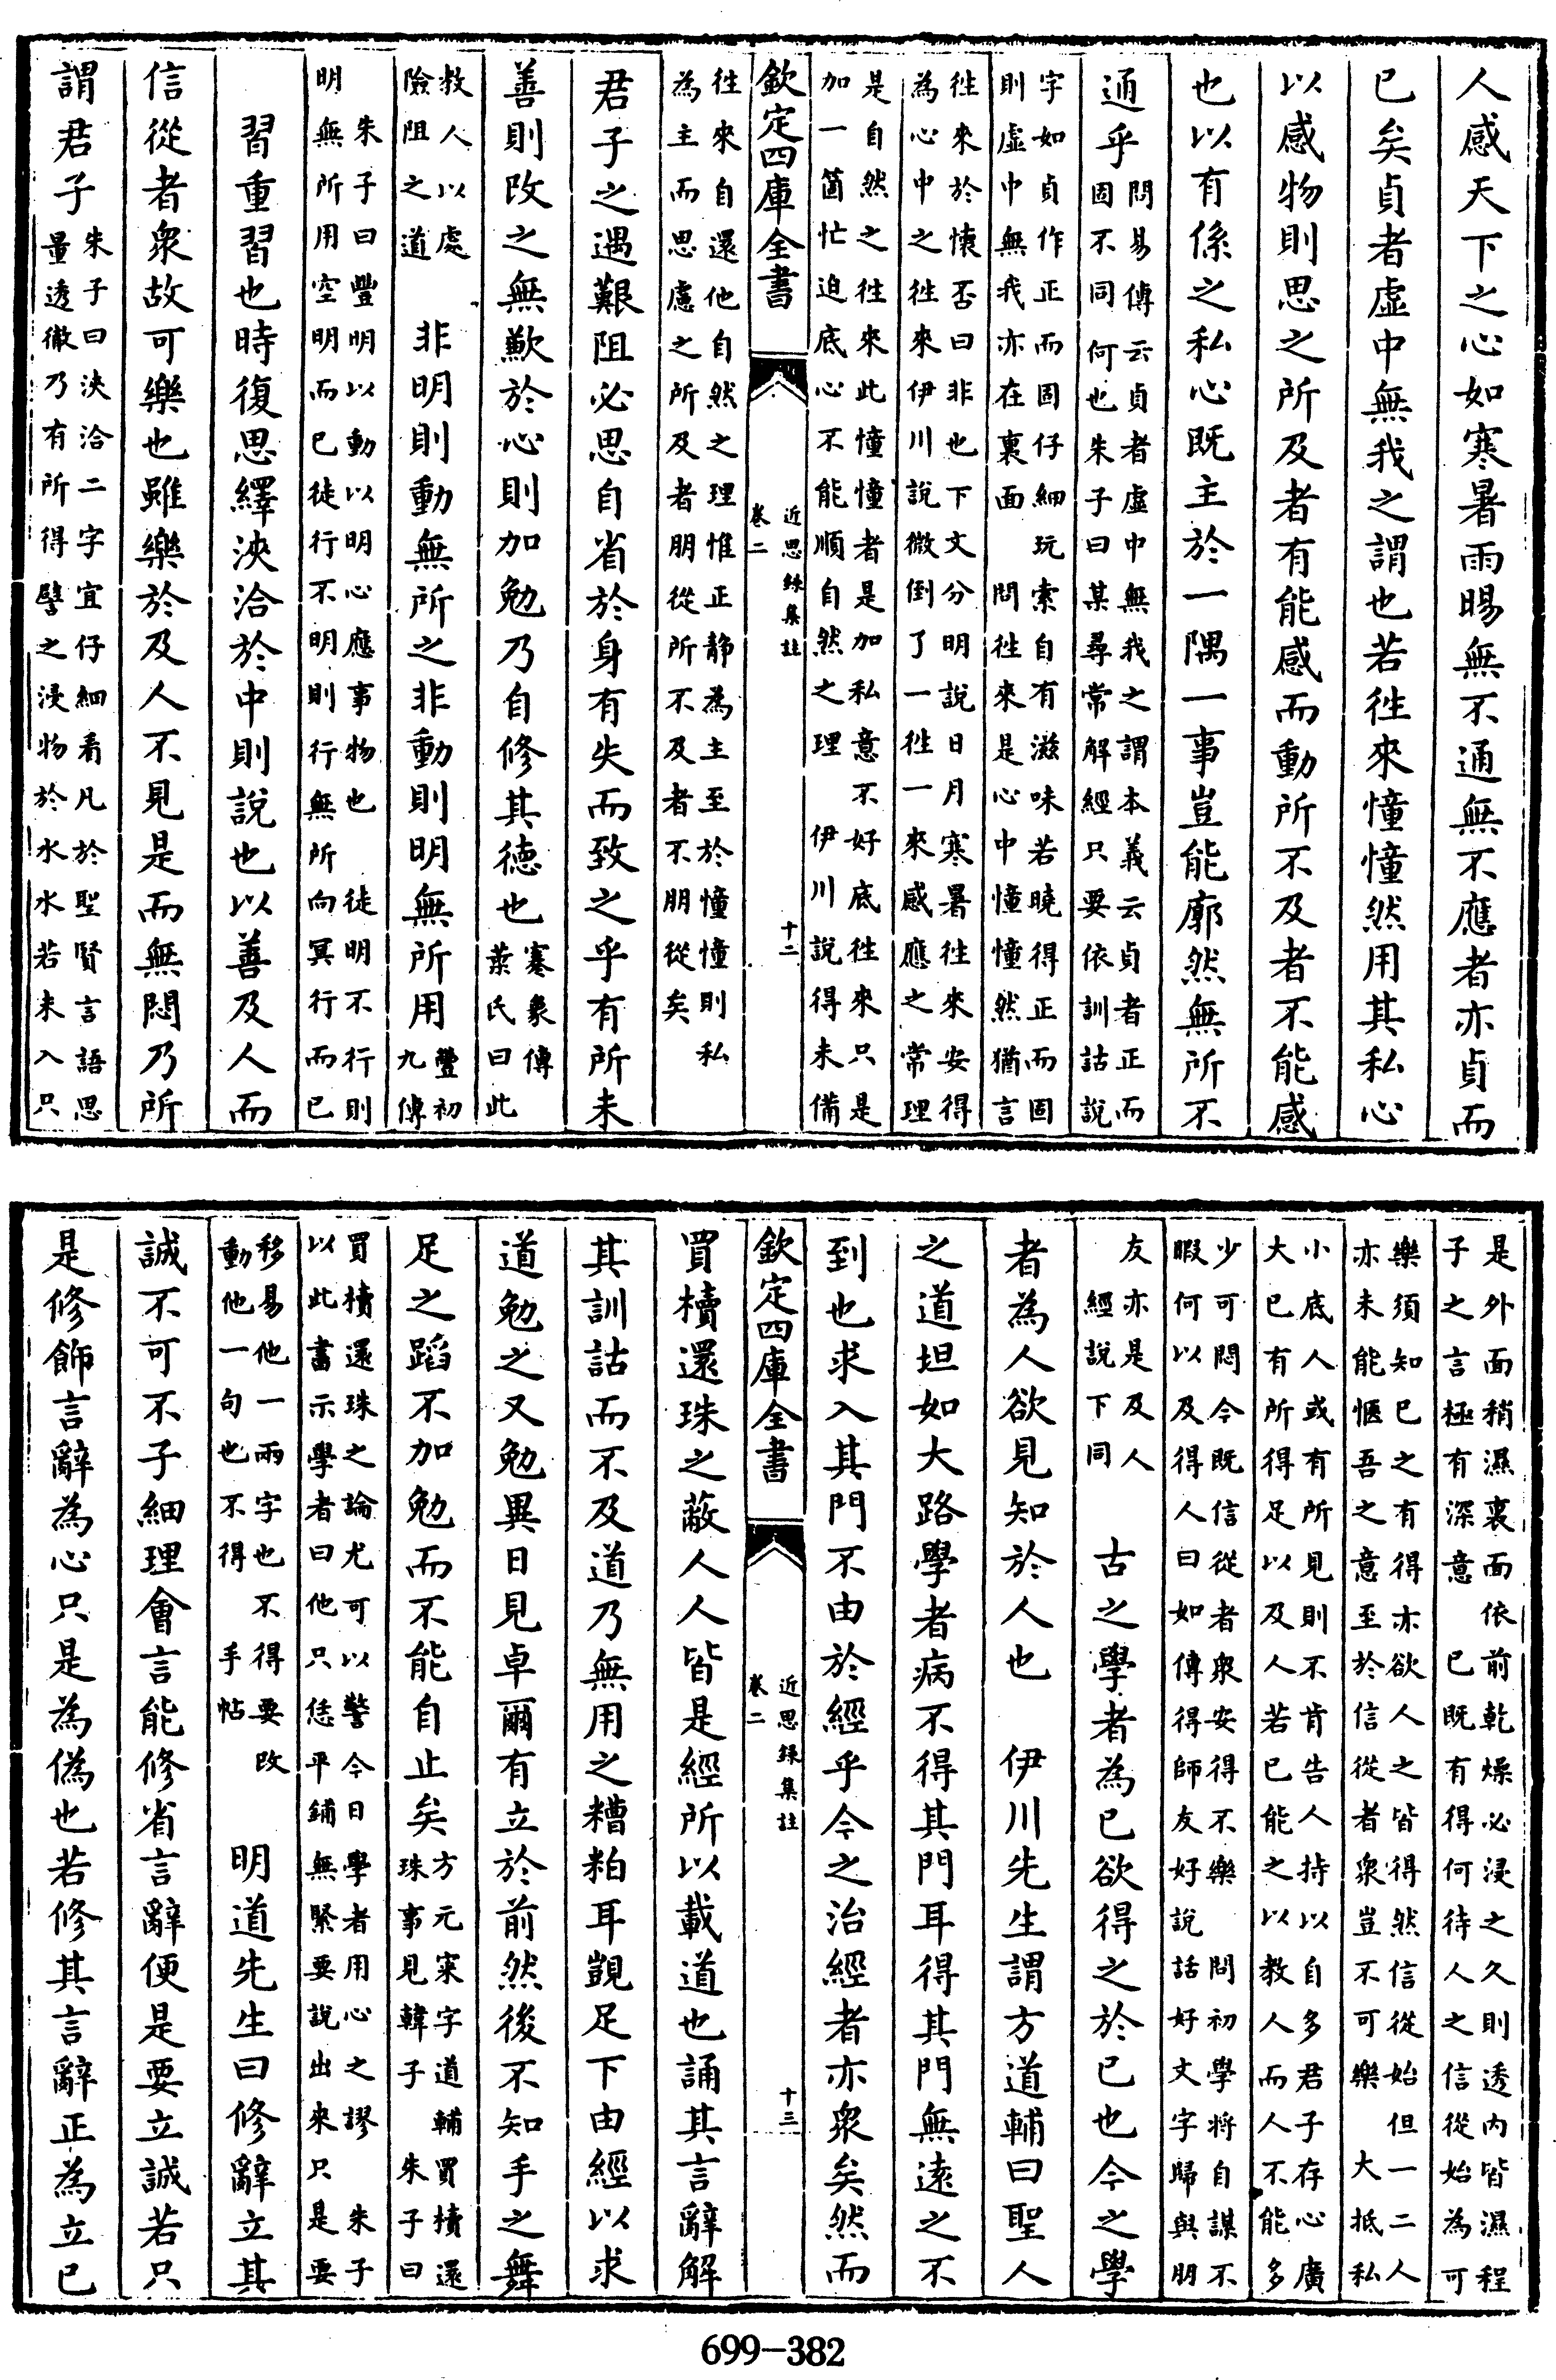 人感天下之心如寒暑雨暘無不通無不應者亦貞而
已矣貞者虛中無我之謂也若徃來憧憧然用其私心
以感物則思之所及者有能感而動所不及者不能感
也以有係之私心既主於一隅一事豈能廓然無所不
通乎問易傳云貞者虛中無我之謂本義云貞者正而
固不同何也朱子曰某尋常解經只要依訓詁說
字如貞作正而固仔細玩索自有滋味若曉得正而固
則虛中無我亦在裏面　問徃來是心中憧憧然猶言
徃來於懐否曰非也下文分明說日月寒暑徃來安得
為心中之徃來伊川說微倒了一徃一來感應之常理
是自然之徃來此憧憧者是加私意不好底徃來只是
加一箇忙迫底心不能順自然之理　伊川說得未備
欽定四庫全書　近思録集註
卷二　十二
徃來自還他自然之理惟正靜為主至於憧憧則私
為主而思慮之所及者朋從所不及者不朋從矣
君子之遇艱阻必思自省於身有失而致之乎有所未
善則改之無歉於心則加勉乃自修其徳也蹇象傳
葉氏曰此
教人以處
險阻之道　非明則動無所之非動則明無所用豐初
九傳
朱子曰豐明以動以明心應事物也　徒明不行則
明無所用空明而已徒行不明則行無所向冥行而已
習重習也時復思繹浹洽於中則說也以善及人而
信從者衆故可樂也雖樂於及人不見是而無悶乃所
謂君子朱子曰浹洽二字宜仔細看凡於聖賢言語思
量透徹乃有所得譬之浸物於水水若未入只
是外面稍濕裏面依前乾燥必浸之久則透内皆濕程
子之言極有深意　已既有得何待人之信從始為可
樂須知已之有得亦欲人之皆得然信從始但一二人
亦未能愜吾之意至於信從者衆豈不可樂　大抵私
小底人或有所見則不肯告人持以自多君子存心廣
大已有所得足以及人若已能之以教人而人不能多
少可悶今既信從者衆安得不樂　問初學將自謀不
暇何以及得人曰如傳得師友好說話好文字歸與朋
友亦是及人
經說下同　古之學者為已欲得之於已也今之學
者為人欲見知於人也　伊川先生謂方道輔曰聖人
之道坦如大路學者病不得其門耳得其門無逺之不
到也求入其門不由於經乎今之治經者亦衆矣然而
欽定四庫全書　近思録集註
卷二　十三
買櫝還珠之蔽人人皆是經所以載道也誦其言辭解
其訓詁而不及道乃無用之糟粕耳覬足下由經以求
道勉之又勉異日見卓爾有立於前然後不知手之舞
足之蹈不加勉而不能自止矣方元寀字道輔　買櫝還
珠事見韓子　朱子曰
買櫝還珠之論尤可以警今日學者用心之謬　朱子
以此書示學者曰他只恁平鋪無緊要說出來只是要
移易他一兩字也不得要改
動他一句也不得　手帖　明道先生曰修辭立其
誠不可不子細理會言能修省言辭便是要立誠若只
是修飾言辭為心只是為偽也若修其言辭正為立已
699-382